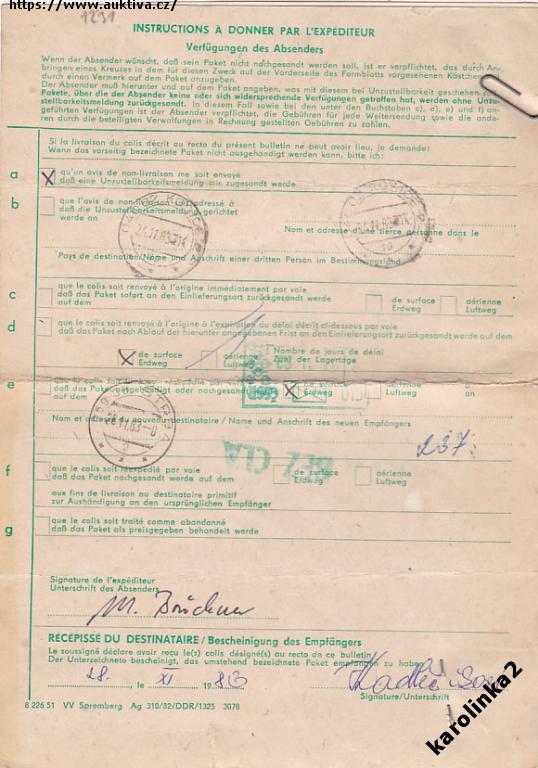 https://www.auktiva.cz/
1231
INSTRUCTIONS À DONNER PAR L'EXPÉDITEUR
Verfügungen des Absenders
Wenn der Absender wünscht, daß sein Paket nicht nachgesandt werden soll, ist er verpflichtet, das durch An-
bringen eines Kreuzes in dem für diesen Zweck auf der Vorderseite des Formblatts vorgesehenen Kästchen
durch einen Vermerk auf dem Paket anzugeben.
Der Absender muß hierunter und auf dem Paket angeben, was mit diesem bei Unzustellbarkeit geschehen so
Pakete, über die der Absender keine oder sich widersprechende Verfügungen getroffen hat, werden ohne Unzu-
stellbarkeitsmeldung zurückgesandt. In diesem Fall sowie bei den unter den Buchstaben c), d), e) und f) an-
geführten Verfügungen ist der Absender verpflichtet, die Gebühren für jede Weitersendung sowie die ande-
ren durch die beteiligten Verwaltungen in Rechnung gestellten Gebühren zu zahlen.
Si la livraison du colis décrit au recto du présent bulletin ne peut avoir lieu, je demande:
Wenn das vorseitig bezeichnete Paket nicht ausgehändigt werden kann, bitte ich:
a X qu'un avis de non-livraison me soit envoyé
daß eine Unzustellbarkeitsmeldung mir zugesandt werde
b que l'avis de non-livraison soit adressé à
daß die Unzustellbarkeitsmeldung gerichtet
werde an
Nom et adresse d'une tierce personne dans le
Pays de destination/Name und Anschrift einer dritten Person im Bestimmungsland
c que le colis soit renvoyé à l'origine immédiatement par voie
daß das Paket sofort an den Einlieferungsort zurückgesandt werde
auf dem
de surface
Erdweg
aérienne
Luftweg
d que le colis soit renvoyé à l'origine à l'expiration du délai décrit ci-dessous par voie
daß das Paket nach Ablauf der hierunter angegebenen Frist an den Einlieferungsort zurückgesandt werde auf dem
X de surface
Erdweg
aérienne
Luftweg
Nombre de jours de délai
Zahl der Lagertage
e que le colis soit réexpédié par vo
daß das Paket ausgehändigt oder nachgesandt
auf dem
X de surface
Erdweg
aérienne
Luftweg
à
an
Nom et adresse du nouveau destinataire / Name und Anschrift des neuen Empfängers
237
BEZ CLA
f que le colis soit réexpédié par voie
daß das Paket nachgesandt werde auf dem
de surface
Erdweg
aérienne
Luftweg
aux fins de livraison au destinataire primitif
zur Aushändigung an den ursprünglichen Empfänger
g que le colis soit traité comme abandonné
daß das Paket als preisgegeben behandelt werde
Signature de l'expéditeur
Unterschrift des Absenders
M. Brückner
RÉCÉPISSÉ DU DESTINATAIRE / Bescheinigung des Empfängers
Le soussigné déclare avoir reçu le(s) colis désigné(s) au recto de ce bulletin
Der Unterzeichnete bescheinigt, das umstehend bezeichnete Paket empfangen zu haben
28. , le XI 1983
Signature/Unterschrift
8 226 51 VV Spremberg Ag 310/82/DDR/1325 3078
karolinka2